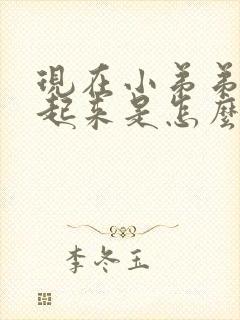 現在小弟弟
起来是怎麼
李冬玉